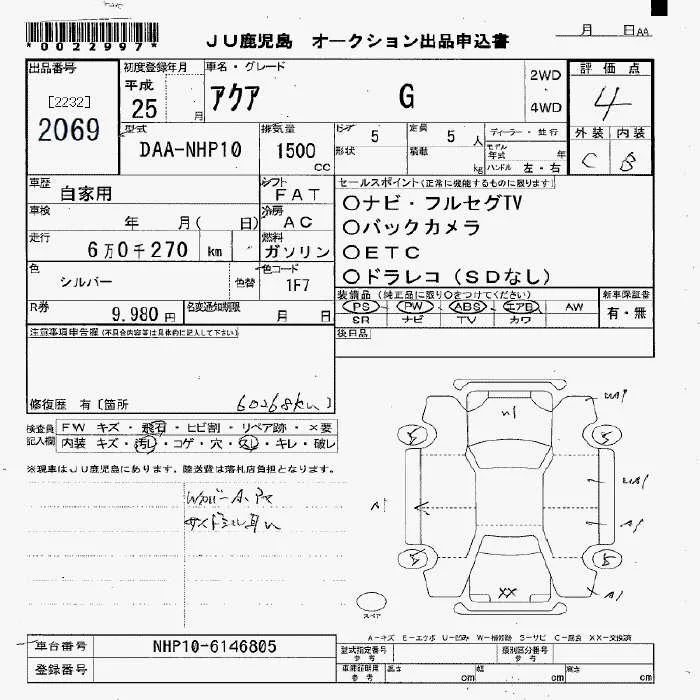 *0022997*
JU鹿児島 オークション出品申込書
月 日AA
出品番号
[2232]
2069
初度登録年月
平成
25 月
車名・グレード
アクア G
2WD
4WD
評価点
4
外装 内装
C B
型式
DAA-NHP10
排気量
1500
CC
ドア 5
形状
定員 5 人
積載 kg
ディーラー・並行
モデル
年式 年
ハンドル 左・右
車歴
自家用
シフト
FAT
車検
年 月( 日)
冷房
AC
走行
6万0千270 km
燃料
ガソリン
色
シルバー
色替
色コード
1F7
R券
9.980円
名変通知期限
月 日
セールスポイント(正常に機能するものに限ります)
○ナビ・フルセグTV
○バックカメラ
○ETC
○ドラレコ(SDなし)
装備品(純正品に限り○をつけてください)
PS PW ABS エアB AW
SR ナビ TV カワ
新車保証書
有・無
後日品
注意事項申告欄(不具合内容等は具体的に記入して下さい)
60268km
修復歴 有〔箇所 〕
検査員
記入欄
FW キズ・飛石・ヒビ割・リペア跡・×要
内装 キズ・汚レ・コゲ・穴・欠シ・キレ・破レ
※現車はJU鹿児島にあります。陸送費は落札店負担となります。
A1
A1
XX
5
5
5
5
スペア
A-キズ E-エクボ U-凹み W-補修跡 S-サビ C-腐食 XX-交換済
車台番号
NHP10-6146805
登録番号
型式指定番号
参考
類別区分番号
参考
車庫証明用
参考
長さ cm
幅 cm
高さ cm